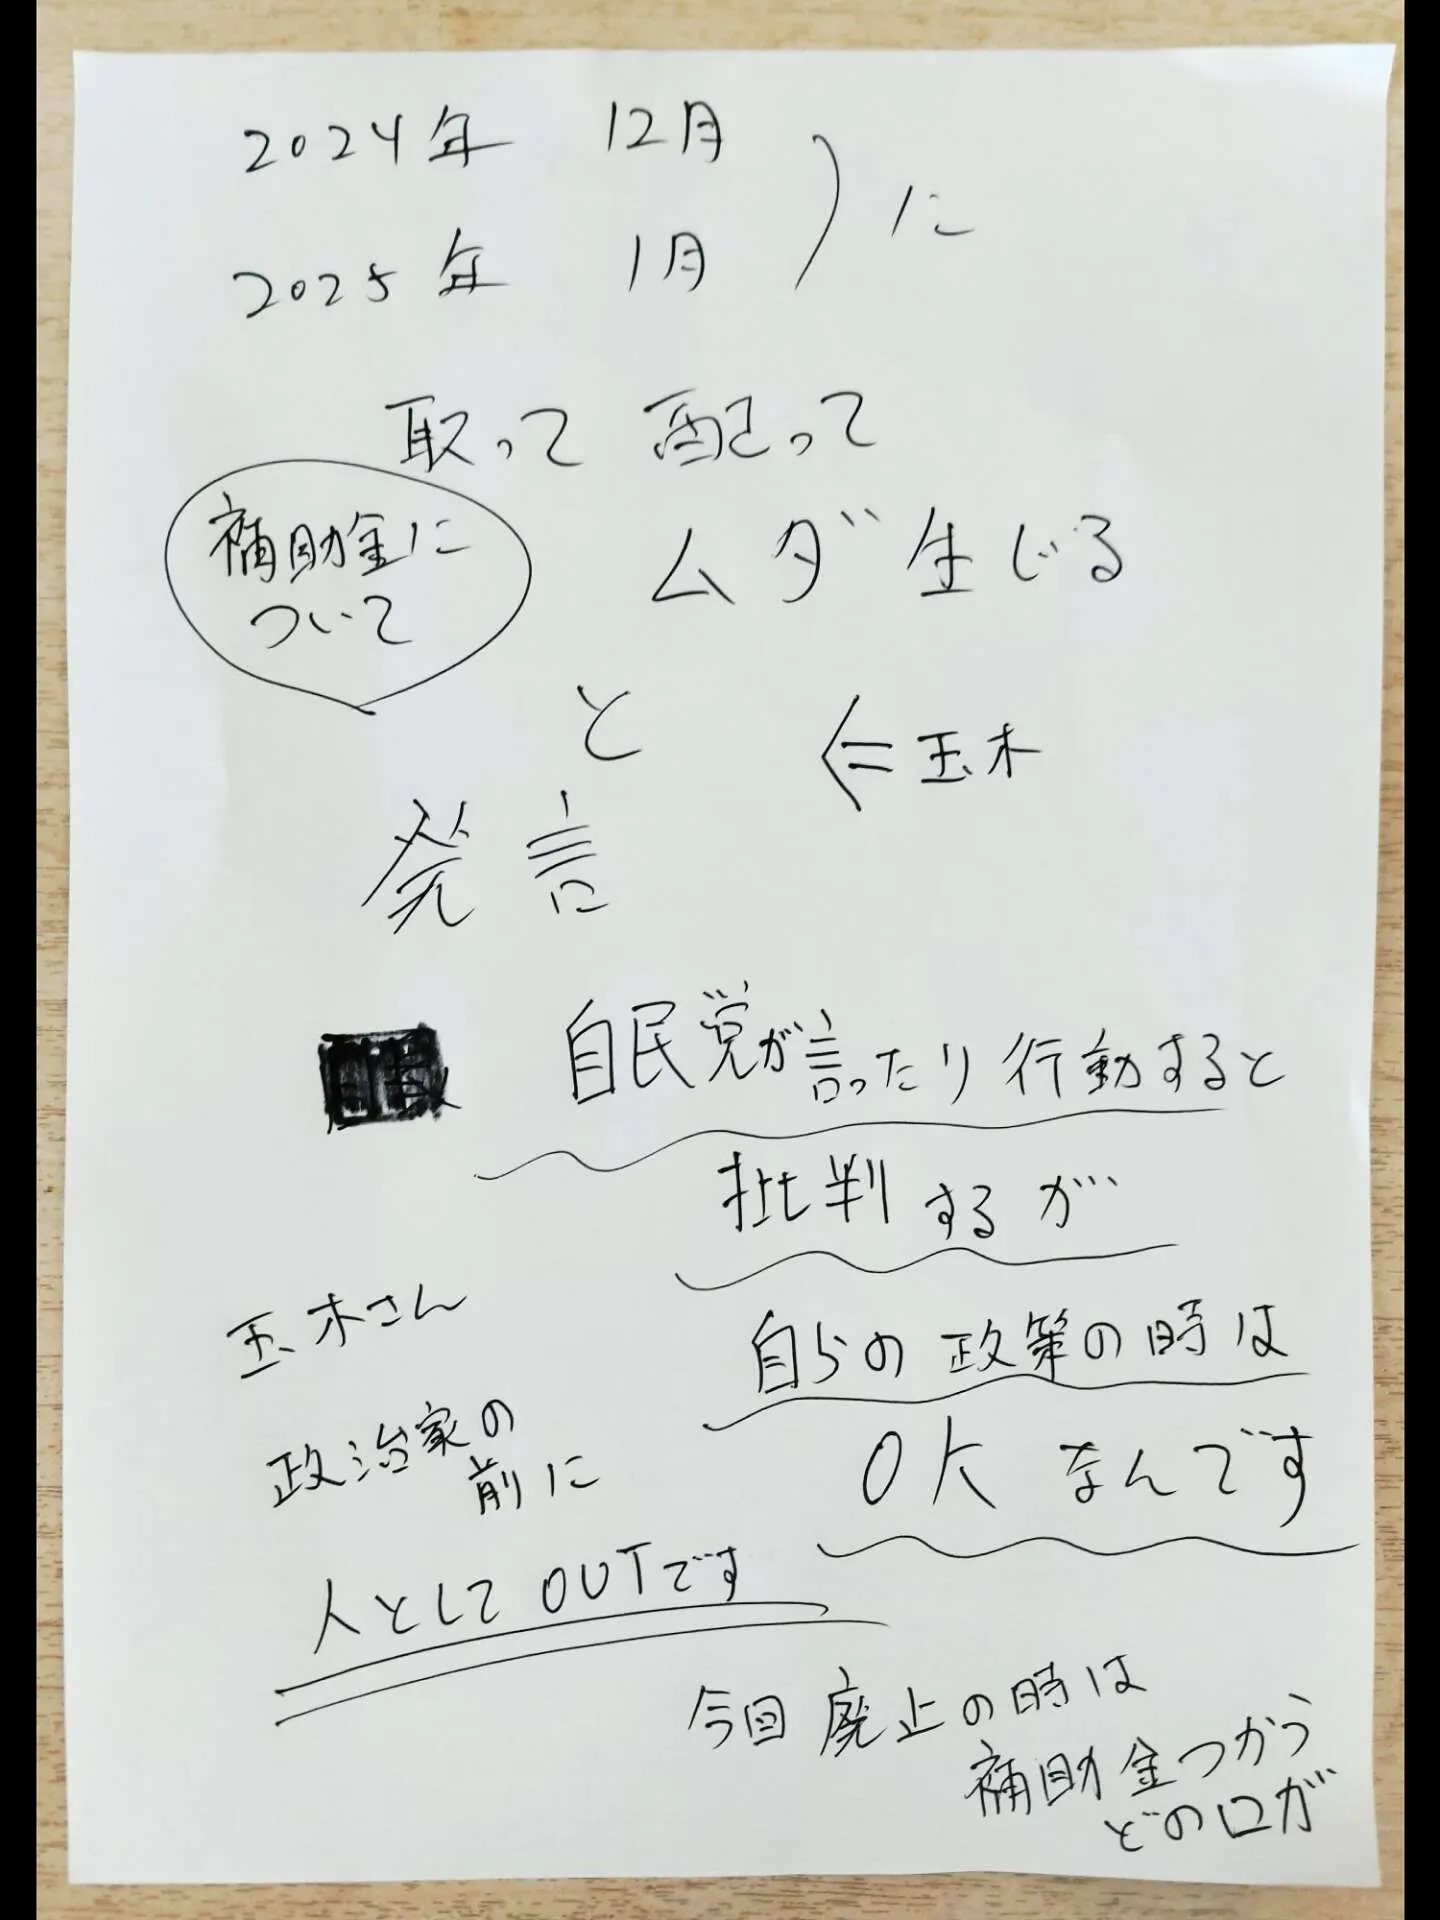 2024年 12月
2025年 1月
に
取って 配って
補助金に
ついて
ムダ 生じる
と
⇐ 玉木
発言
自民党が言ったり行動すると
批判するが
自らの政策の時は
OK なんです
玉木さん
政治家の
前に
人としてOUTです
今回 廃止の時は
補助金つかう
どの口が